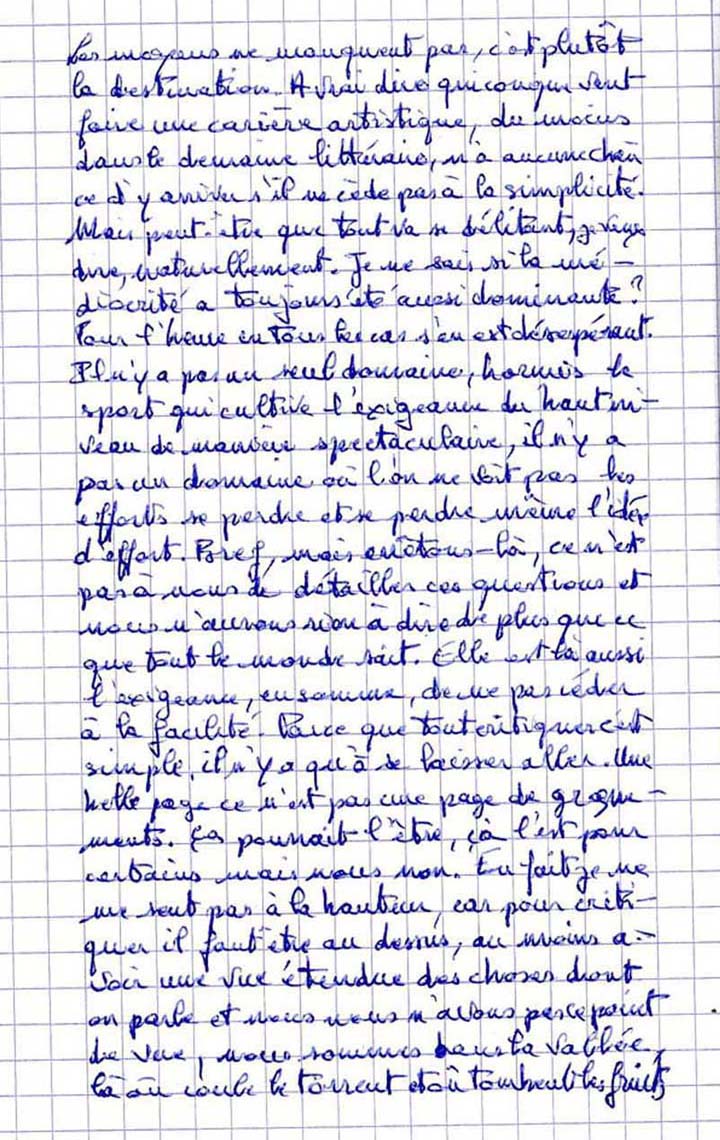 Les moyens ne manquent pas, c'est plutôt
la destination. A vrai dire quiconque veut
faire une carière artistique, du moins
dans le domaine littéraire, n'a aucune chan
ce d'y arriver s'il ne cède pas à la simplicité.
Mais peut-être que tout va se délitant, je veux
dire, naturellement. Je ne sais si la mé-
diocrité a toujours été aussi dominante ?
Pour l'heure en tous les cas s'en est désespérant.
Il n'y a pas un seul domaine, hormis le
sport qui cultive l'exigeance du haut ni-
veau de manière spectaculaire, il n'y a
pas un domaine où l'on ne voit pas les
efforts se perdre et se perdre même l'idée
d'effort. Bref, mais arrêtons-là, ce n'est
pas à nous de détailler ces questions et
nous n'aurons rien à dire de plus que ce
que tout le monde sait. Elle est là aussi
l'exigeance, en somme, de ne pas céder
à la facilité. Parce que tout critiquer c'est
simple, il n'y a qu'à se laisser aller. Une
belle page ce n'est pas une page de grogne-
ments. ça pourrait l'être, çà l'est pour
certains mais nous non. En fait je ne
me sent pas à la hauteur, car pour criti-
quer il faut être au dessus, au moins a-
voir une vue étendue des choses dont
on parle et nous nous n'avons pas ce point
de vue, nous sommes dans la vallée,
là où coule le torrent et où tombent les fruits